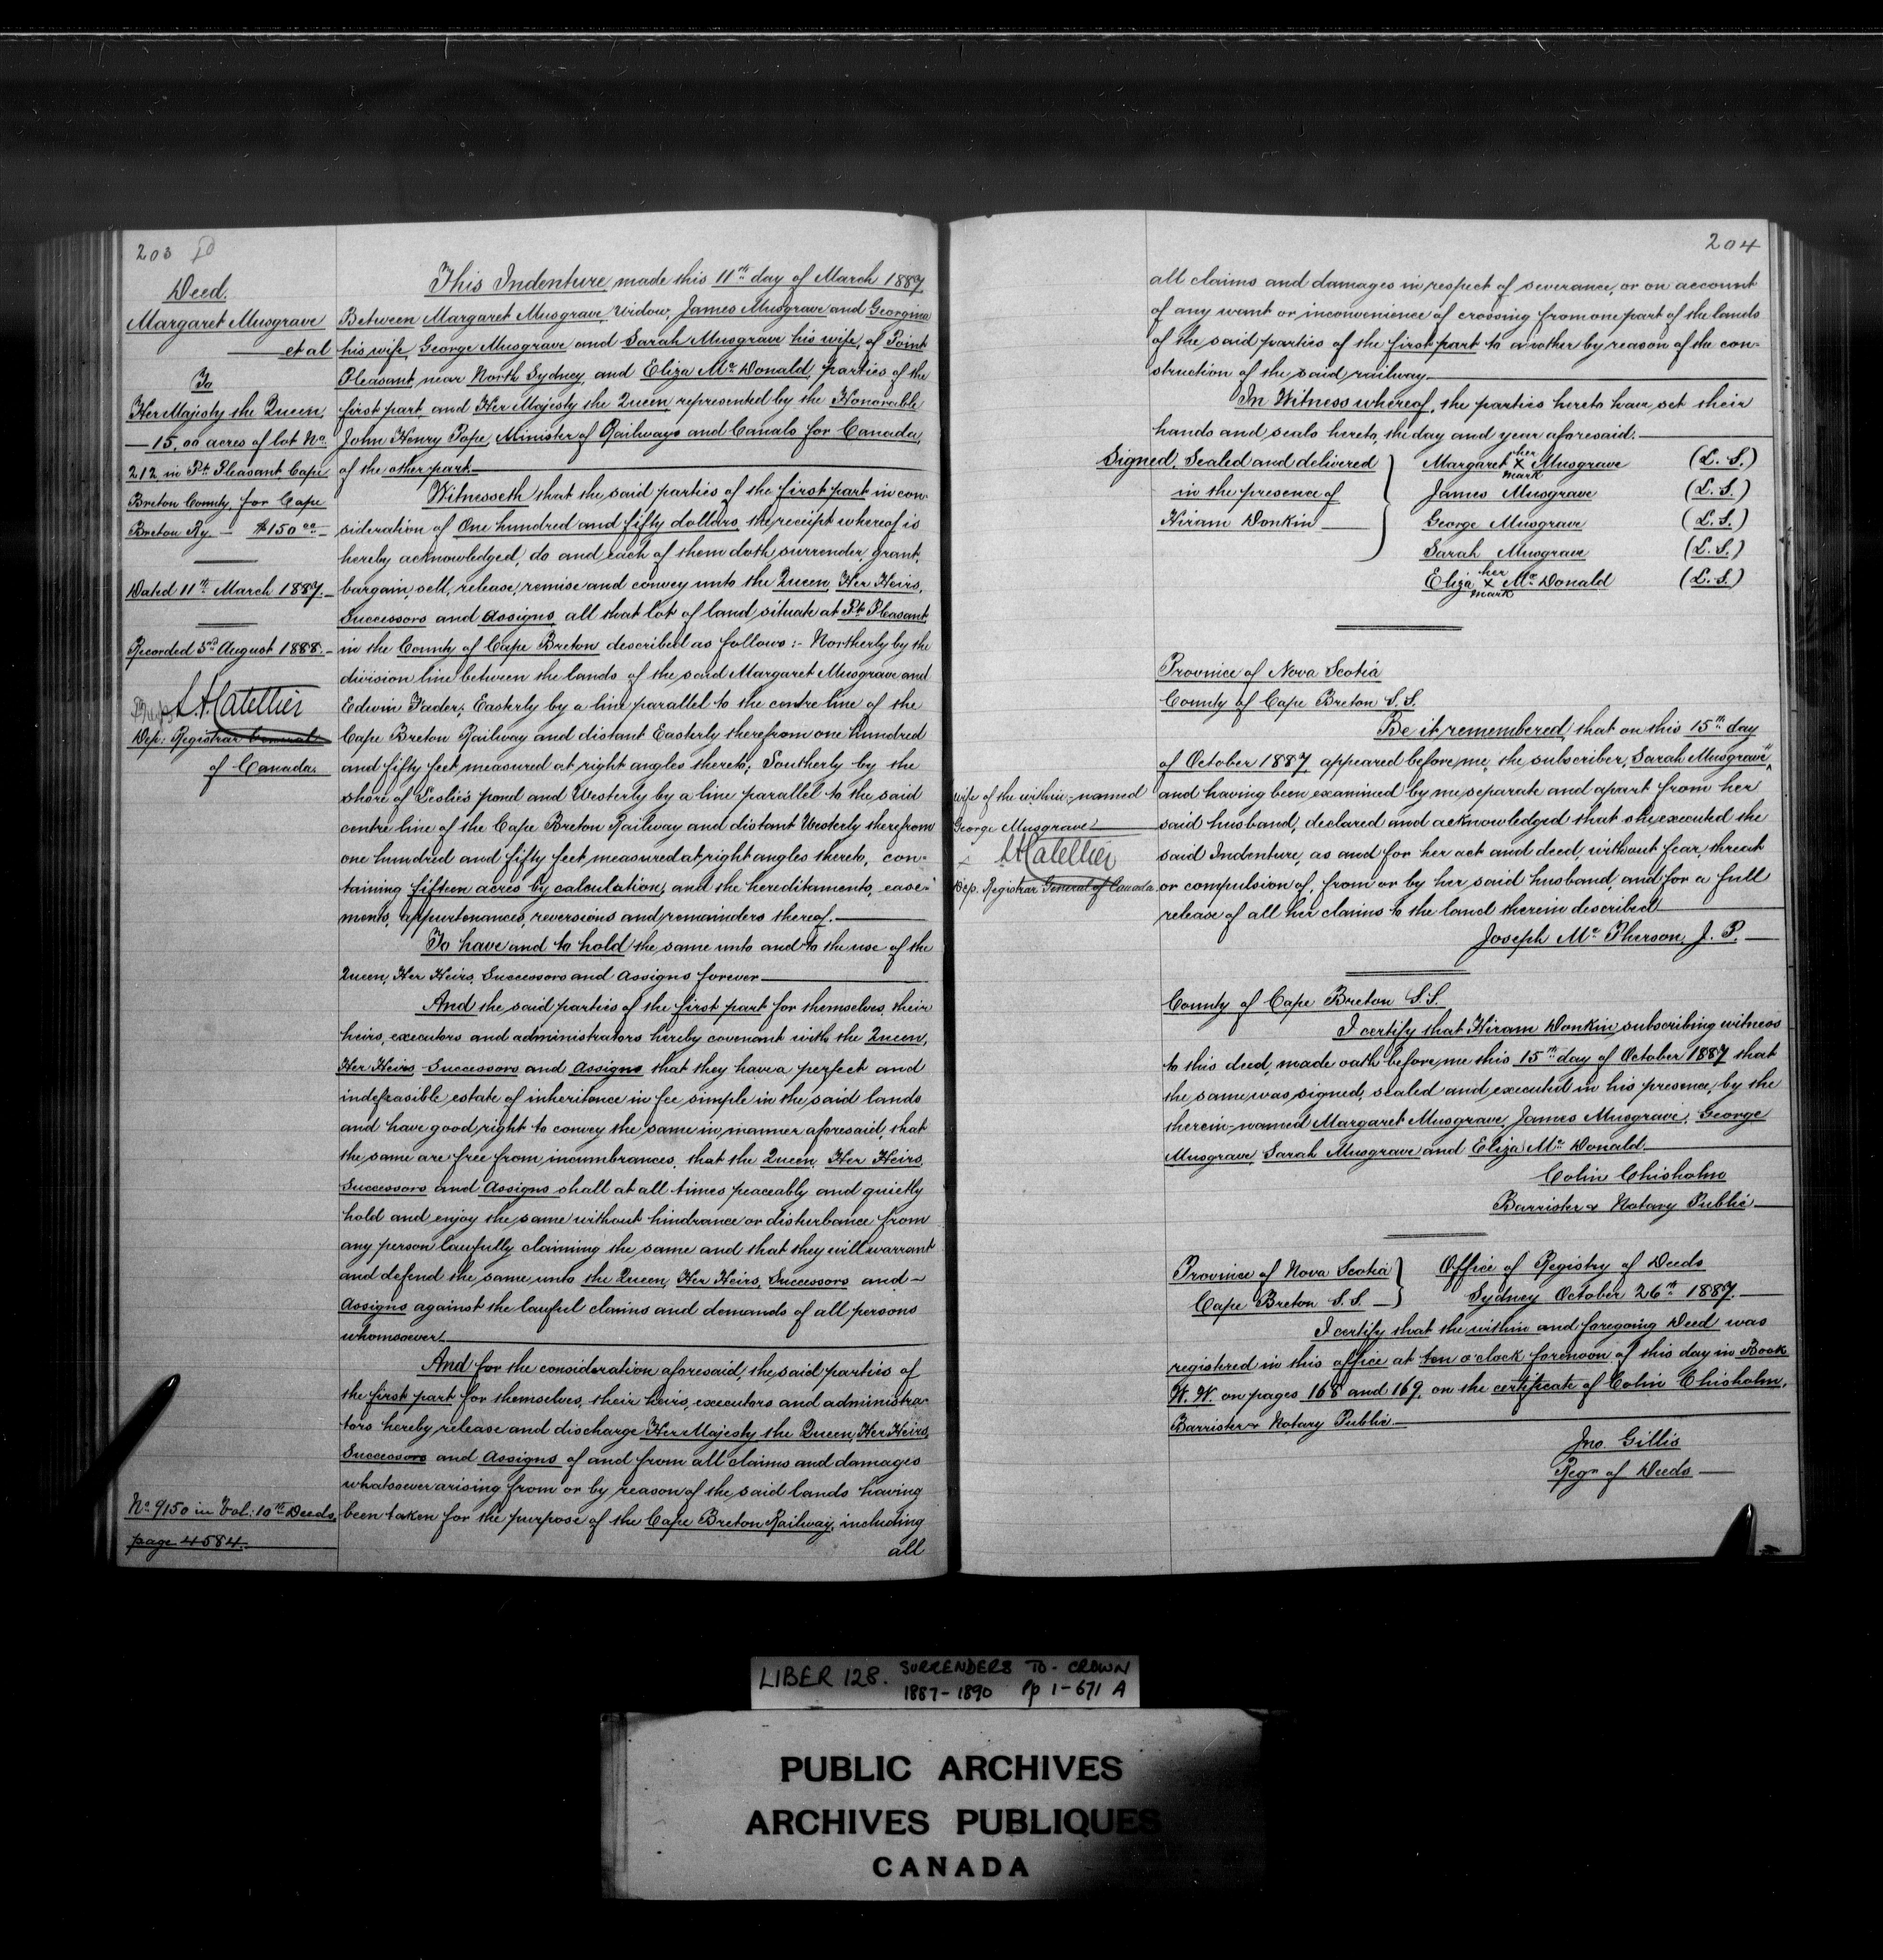 203
Deed.
Margaret Musgrave
et al
To
Her Majesty the Queen,
15.00 acres of lot No.
212 in Pt. Pleasant Cape
Breton County, for Cape
Breton Ry. - $150.00
Dated 11th March 1887.
Recorded 3rd August 1888.
L.A. Catellier
Dep: Registrar General
of Canada.
No 9150 in Vol: 10th Deeds,
page 4584.
This Indenture, made this 11th day of March 1887
Between Margaret Musgrave, widow, James Musgrave and Georgina
his wife, George Musgrave and Sarah Musgrave his wife, of Point
Pleasant, near North Sydney, and Eliza Mc Donald, parties of the
first part, and Her Majesty the Queen, represented by the Honorable
John Henry Pope, Minister of Railways and Canals for Canada,
of the other part.
Witnesseth that the said parties of the first part in con-
sideration of One hundred and fifty dollars, the receipt whereof is
hereby acknowledged, do and each of them doth surrender, grant,
bargain, sell, release, remise and convey unto the Queen, Her Heirs,
Successors and Assigns, all that lot of land situate at Pt. Pleasant,
in the County of Cape Breton described as follows:- Northerly by the
division line between the lands of the said Margaret Musgrave and
Edwin Fader; Easterly by a line parallel to the centre line of the
Cape Breton Railway and distant Easterly therefrom one hundred
and fifty feet measured at right angles thereto; Southerly by the
shore of Leslie's pond and Westerly by a line parallel to the said
centre line of the Cape Breton Railway and distant Westerly therefrom
one hundred and fifty feet measured at right angles thereto, con-
taining fifteen acres by calculation, and the hereditaments, ease-
ments, appurtenances, reversions and remainders thereof.
To have and to hold the same unto and to the use of the
Queen, Her Heirs, Successors and Assigns forever
And the said parties of the first part for themselves, their
heirs, executors and administrators hereby covenant with the Queen,
Her Heirs, Successors and Assigns that they have a perfect and
indefeasible estate of inheritance in fee simple in the said lands
and have good right to convey the same in manner aforesaid, that
the same are free from incumbrances, that the Queen, Her Heirs,
Successors and Assigns shall at all times peaceably and quietly
hold and enjoy the same without hindrance or disturbance from
any person lawfully claiming the same and that they will warrant
and defend the same unto the Queen, Her Heirs, Successors and
Assigns against the lawful claims and demands of all persons
whomsoever.
And for the consideration aforesaid, the said parties of
the first part for themselves, their heirs, executors and administra-
tors hereby release and discharge Her Majesty the Queen, Her Heirs,
Successors and Assigns of and from all claims and damages
whatsoever arising from or by reason of the said lands having
been taken for the purpose of the Cape Breton Railway, including
all
204
all claims and damages in respect of severance, or on account
of any want or inconvenience of crossing from one part of the lands
of the said parties of the first part to another by reason of the con-
struction of the said railway
In Witness whereof, the parties hereto have set their
hands and seals hereto, the day and year aforesaid.
Signed, Sealed and delivered
in the presence of
Hiram Donkin
Margaret her X mark Musgrave (L.S.)
James Musgrave (L.S.)
George Musgrave (L.S.)
Sarah Musgrave (L.S.)
Eliza her X mark Mc Donald (L.S.)
Province of Nova Scotia
County of Cape Breton S.S.
Be it remembered, that on this 15th day
of October 1887, appeared before me, the subscriber, Sarah Musgrave,
wife of the within-named
George Musgrave
L.A. Catellier
Dep. Registrar General of Canada
and having been examined by me separate and apart from her
said husband, declared and acknowledged that she executed the
said Indenture, as and for her act and deed, without fear, threat
or compulsion of, from or by her said husband, and for a full
release of all her claims to the land therein described
Joseph Mc Pherson, J. P.
County of Cape Breton S.S.
I certify that Hiram Donkin, subscribing witness
to this deed, made oath before me this 15th day of October 1887 that
the same was signed, sealed and executed in his presence, by the
therein-named Margaret Musgrave, James Musgrave, George
Musgrave, Sarah Musgrave and Eliza Mc Donald
Colin Chisholm
Barrister & Notary Public
Province of Nova Scotia
Cape Breton S.S.
Office of Registry of Deeds
Sydney October 26th 1887.
I certify that the within and foregoing Deed was
registered in this office at ten o'clock forenoon of this day in Book
W. W. on pages 168 and 169, on the certificate of Colin Chisholm,
Barrister & Notary Public
Jno. Gillis
Regr of Deeds
LIBER 128. SURRENDERS TO - CROWN
1887-1890 Pp 1-671 A
PUBLIC ARCHIVES
ARCHIVES PUBLIQUES
CANADA